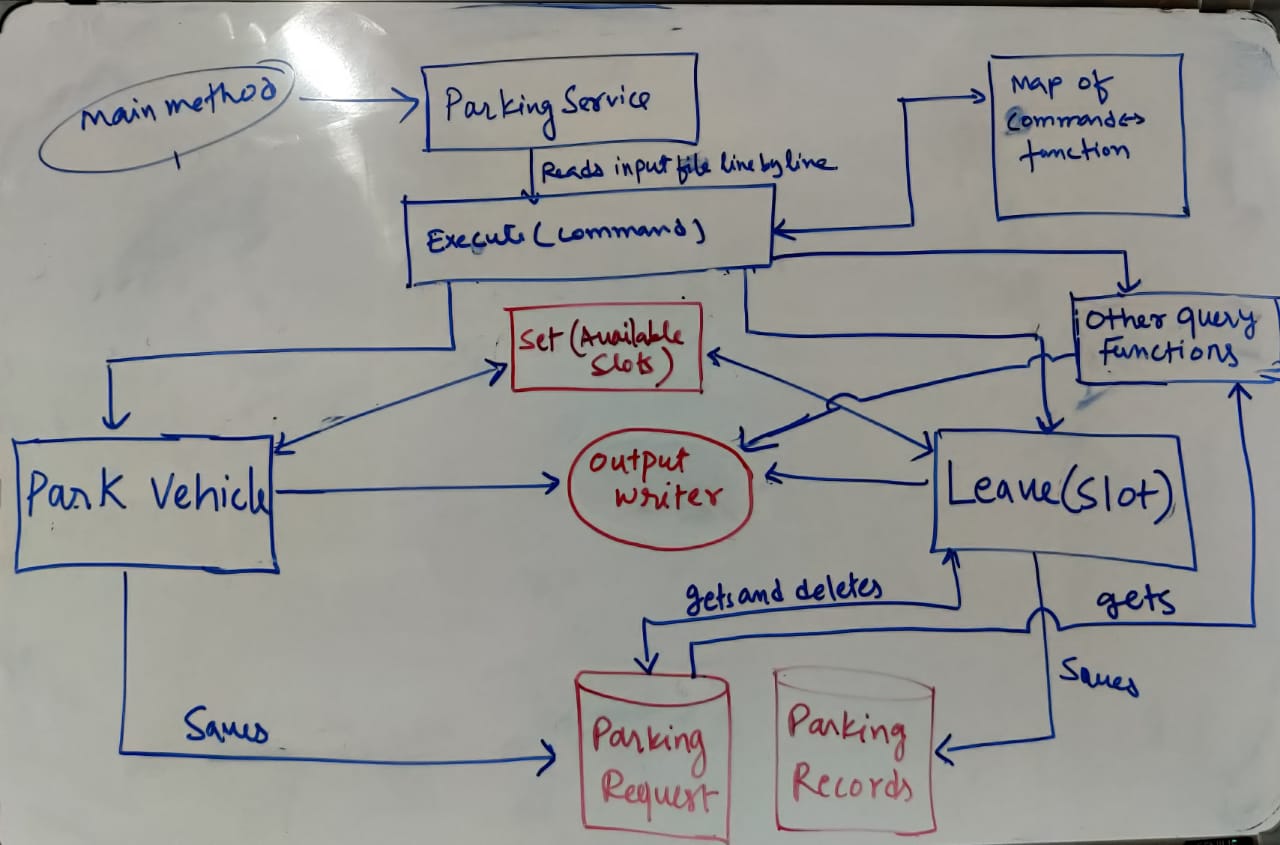 Main method
Parking Service
Map of
Command↔
function
Reads input file line by line
Execute(Command)
Set(Available
Slots)
Other query
Functions
Output
writer
Park Vehicle
Leave(Slot)
gets and deletes
gets
Saves
Saves
Parking
Request
Parking
Records